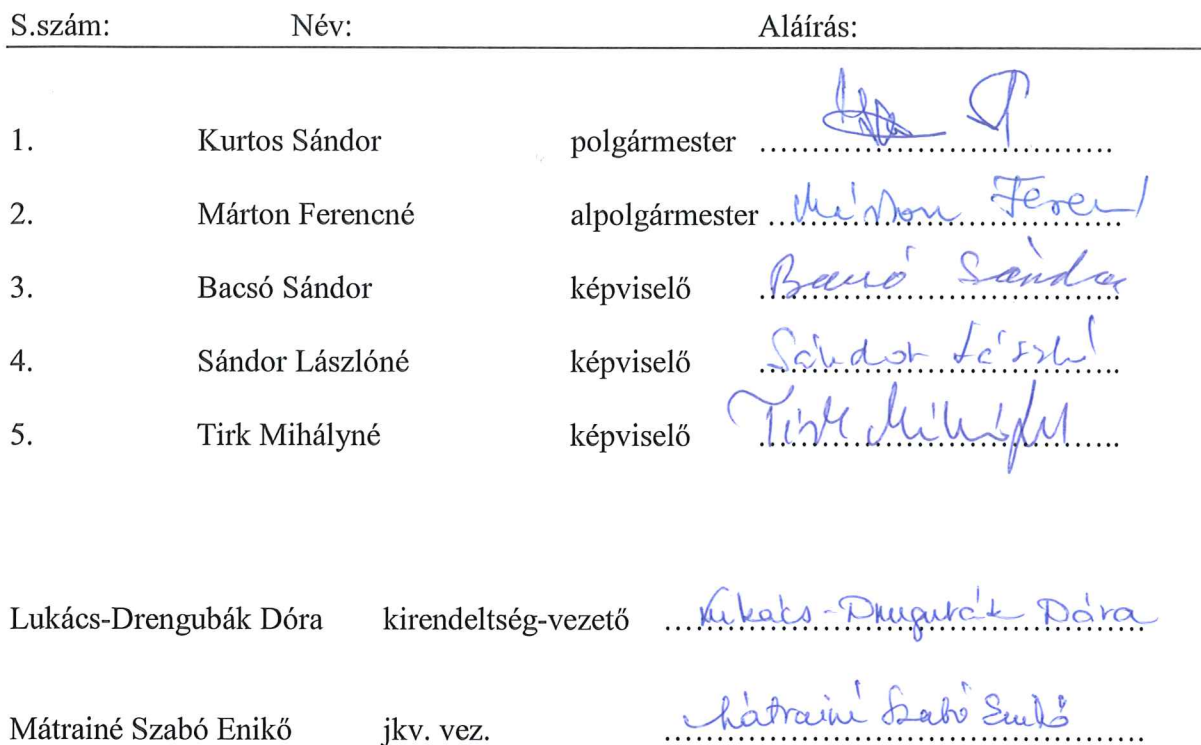 S.szám: Név: Aláírás:
1. Kurtos Sándor polgármester ....................................
2. Márton Ferencné alpolgármester .................................... Márton Ferenc
3. Bacsó Sándor képviselő .................................... Bacsó Sándor
4. Sándor Lászlóné képviselő .................................... Sándor László
5. Tirk Mihályné képviselő .................................... Tirk Mihály
Lukács-Drengubák Dóra kirendeltség-vezető .................................... Lukács-Drengubák Dóra
Mátrainé Szabó Enikő jkv. vez. .................................... Mátrainé Szabó Enikő